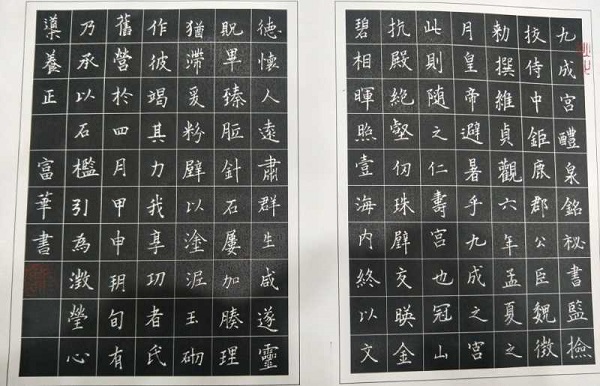 九成宮醴泉銘秘書監撿
挍侍中鉅鹿郡公臣魏徵
勅撰維貞觀六年孟夏之
月皇帝避暑乎九成之宮
此則隨之仁壽宮也冠山
抗殿絕壑仞珠壁交暎金
碧相暉照壹海內終以文
德懷人遠肅群生咸遂靈
貺畢臻胝針石屢加腠理
猶滯爰粉壁以塗泥玉砌
作彼竭其力我享功者氏
舊營於四月甲申玥旬有
乃承以石檻引為澂瑩心
導養正
富華書